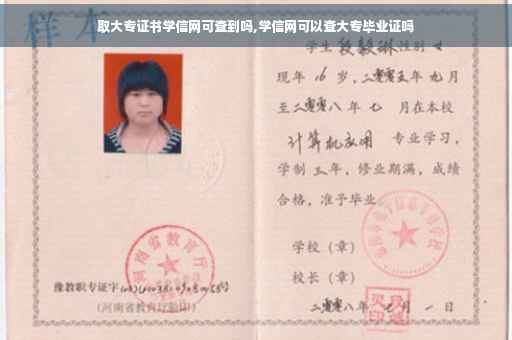 取大专证书学信网可查到吗,学信网可以查大专毕业证吗
样本
学生 段毅琳 性别 女
现年 16 岁，二零零五年 九月
至二零零八年 七 月在本校
计算机应用 专业学习，
学制 三年，修业期满，成绩
合格，准予毕业
学校（章）
校长（章）
二零零八年 七 月 一 日
河南省教育厅
豫教职专证字
(河南省教育厅监印)